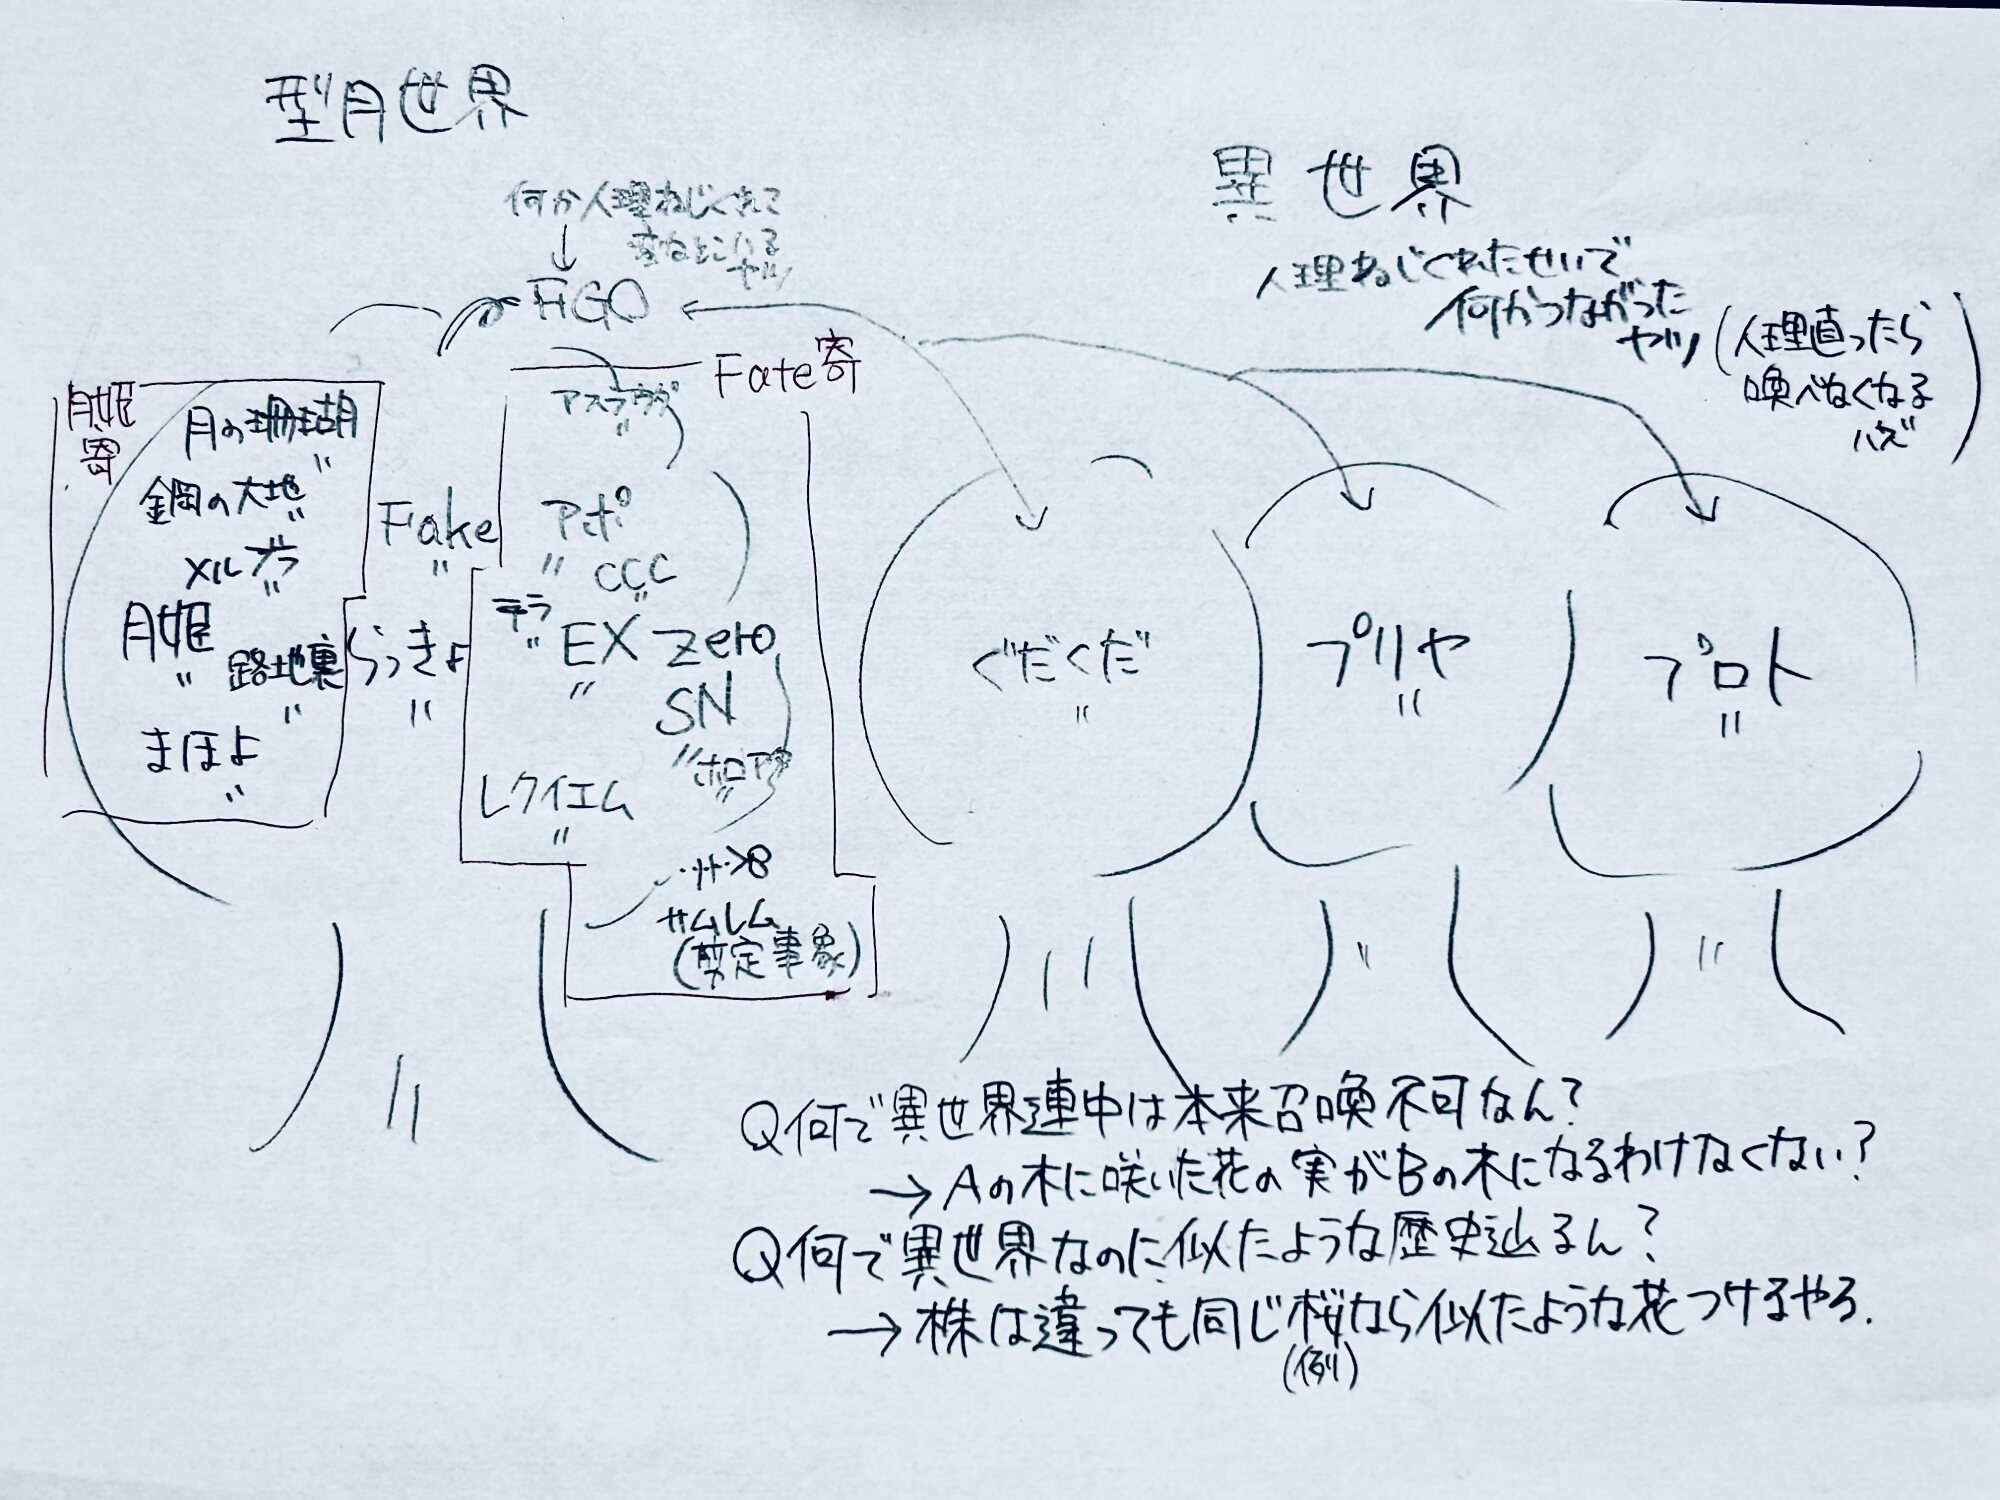 型月世界
何か人理ねじくれて
変なとこいる
ヤツ
FGO
異世界
人理ねじくれたせいで
何かつながった
ヤツ
(人理直ったら
喚べなくなる
ハズ)
月姫
寄
月の珊瑚
〃
鋼の大地
〃
メルブラ
〃
月姫
〃
路地裏
〃
まほよ
〃
Fake
〃
らっきょ
〃
Fate寄
アスラウグ
〃
アポ
〃
CCC
〃
テラ
〃
EX
〃
Zero
SN
〃
ホロアタ
〃
レクイエム
〃
サムレム
(剪定事象)
ぐだぐだ
〃
プリヤ
〃
プロト
〃
Q何で異世界連中は本来召喚不可なん?
→Aの木に咲いた花の実がBの木になるわけなくない?
Q何で異世界なのに似たような歴史辿るん?
→株は違っても同じ桜なら似たような花つけるやろ.
(例)